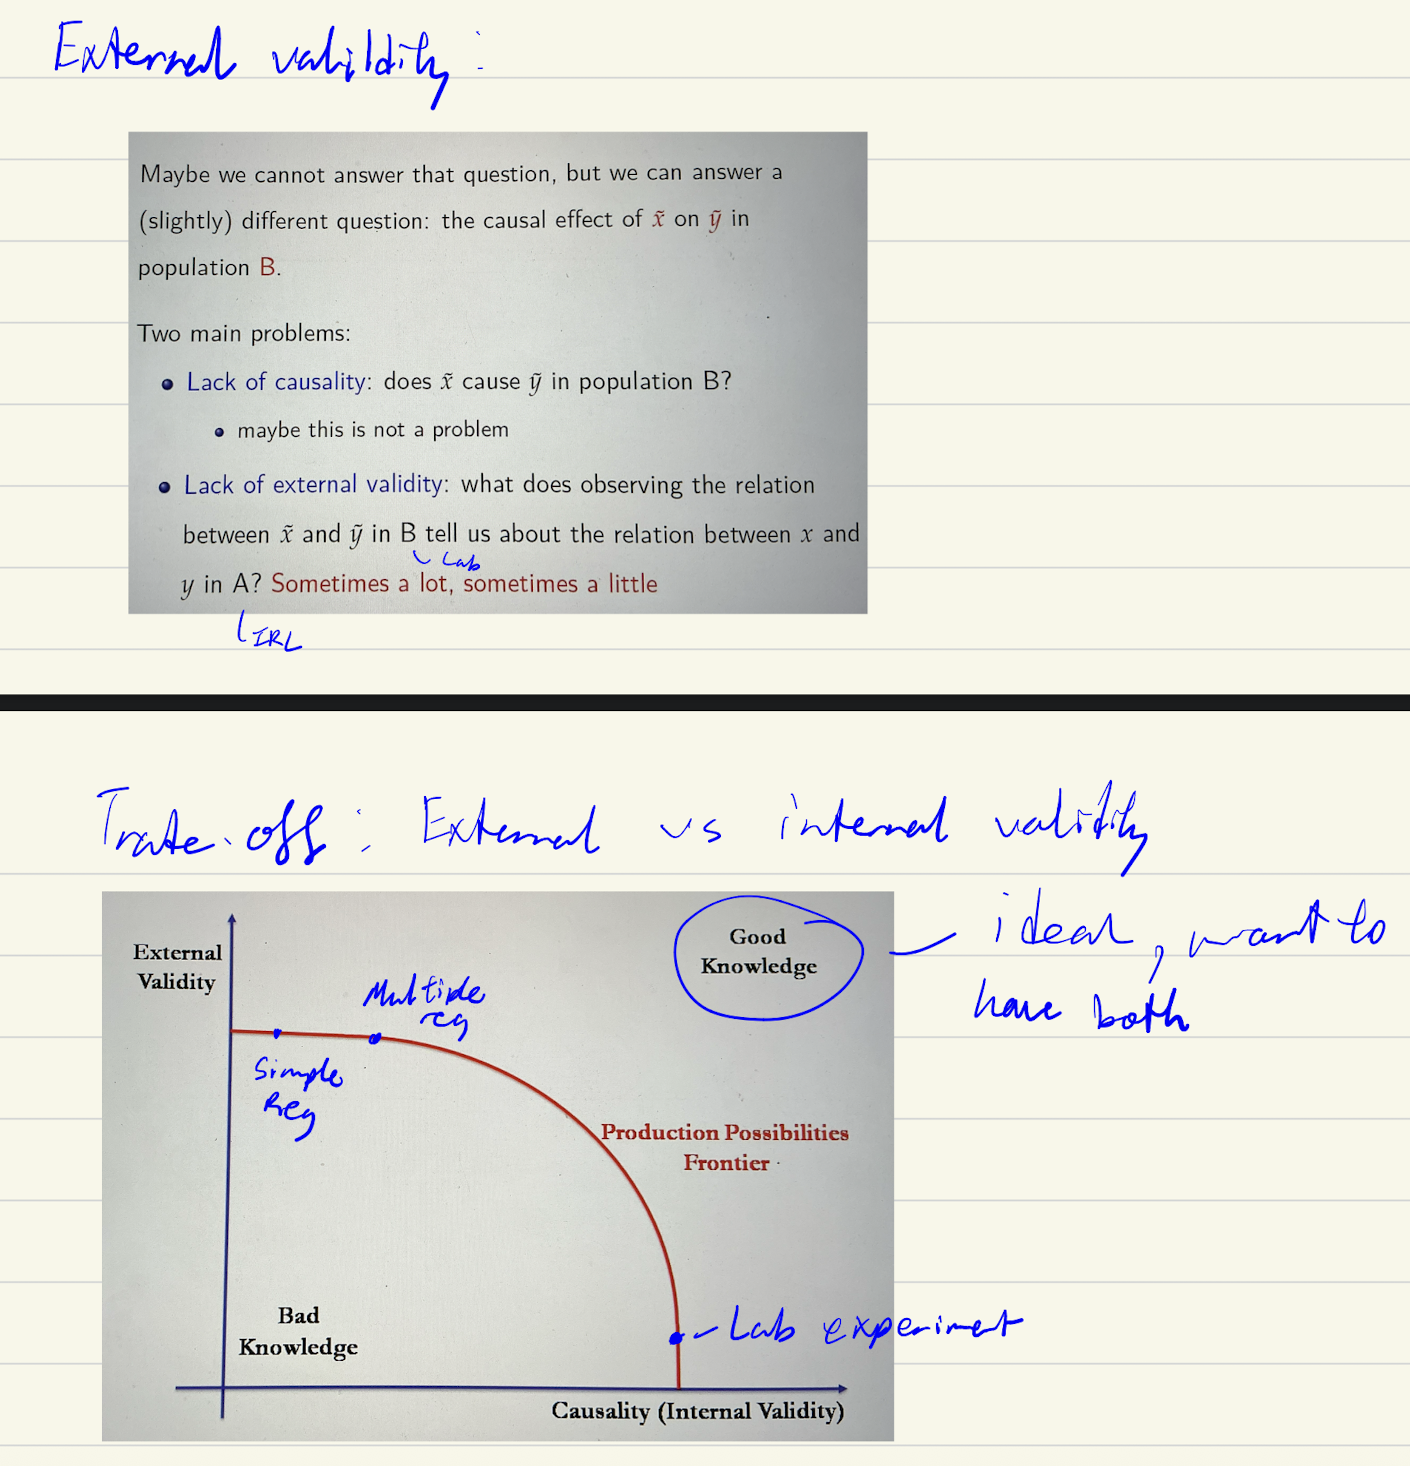 External valildity:
Maybe we cannot answer that question, but we can answer a
(slightly) different question: the causal effect of x̃ on ỹ in
population B.
Two main problems:
Lack of causality: does x̃ cause ỹ in population B?
maybe this is not a problem
Lack of external validity: what does observing the relation
between x̃ and ỹ in B tell us about the relation between x and
Lab
y in A? Sometimes a lot, sometimes a little
IRL
Trate-off: External vs internal validity
External
Validity
Good
Knowledge
ideal, want to
have both
Multiple
reg
Simple
Reg
Production Possibilities
Frontier
Bad
Knowledge
Lab experiment
Causality (Internal Validity)